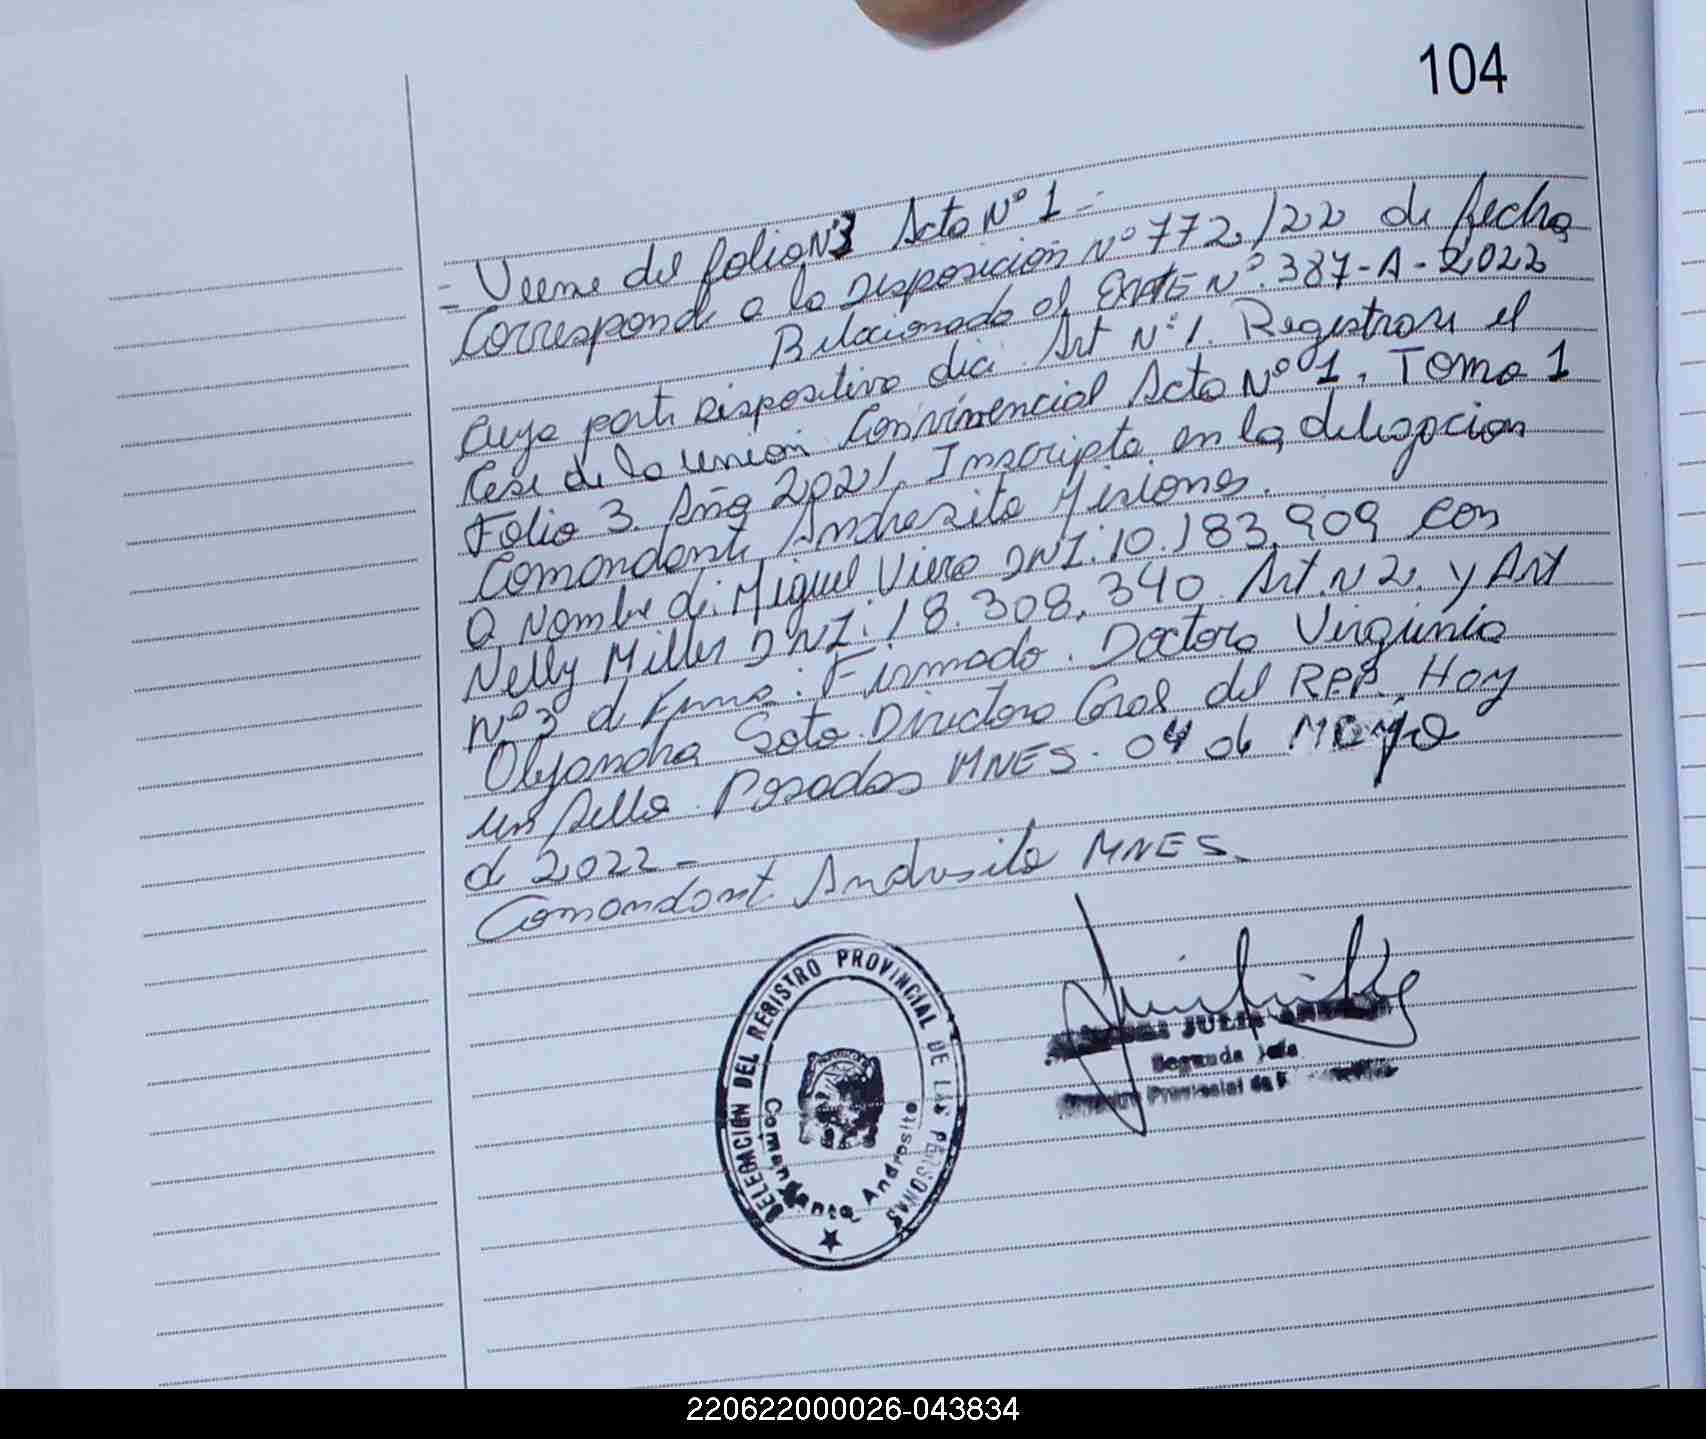 104
- Viene del folio Nº3 Acta Nº 1 -
Corresponde a la Disposición Nº 772/22 de fecha
Relacionado al Expte Nº 387-A-2022
Cuya parte Dispositiva dice Art Nº1. Registrase el
Cese de la unión Convivencial Acta Nº 1, Tomo 1
Folio 3. Año 2021, Inscripta en la delegacion
Comandante Andresito Misiones.
a Nombre de: Miguel Viero DNI: 10.183.909 con
Nelly Miller DNI: 18.308.340 Art. N 2. y Art
Nº 3 de forma: Firmado. Doctora Virginia
Alejandra Soto Directora Gral del RPP. Hoy
un sello Posadas MNES. 04 de Mayo
de 2022 -
Comandante Andresito MNES.
DELEGACIÓN DEL REGISTRO PROVINCIAL DE LAS PERSONAS
Comandante Andresito
JULIA
Segunda Jefa
Provincial de
220622000026-043834